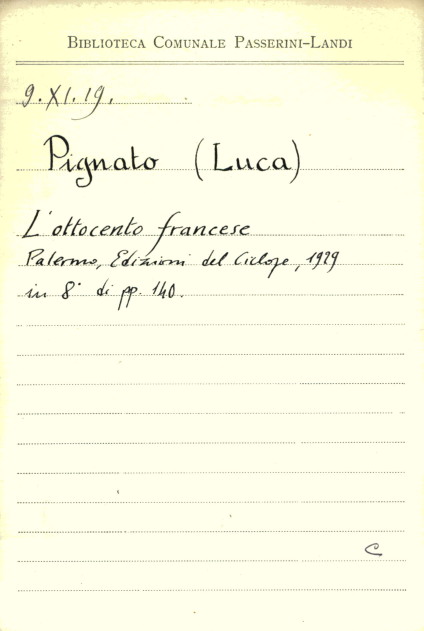 BIBLIOTECA COMUNALE PASSERINI-LANDI
9.XI.19.
Pignato (Luca)
L'ottocento francese
Palermo, Edizioni del Ciclope, 1929
in 8° di pp. 140.
C